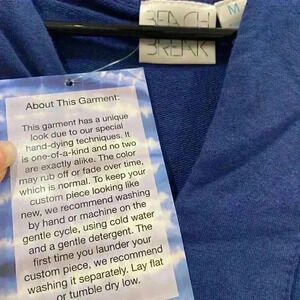 BEACH
BREAK
M
About This Garment:
This garment has a unique
look due to our special
hand-dying techniques. It
is one-of-a-kind and no two
are exactly alike. The color
may rub off or fade over time,
which is normal. To keep your
custom piece looking like
new, we recommend washing
by hand or machine on the
gentle cycle, using cold water
and a gentle detergent. The
first time you launder your
custom piece, we recommend
washing it separately. Lay flat
or tumble dry low.